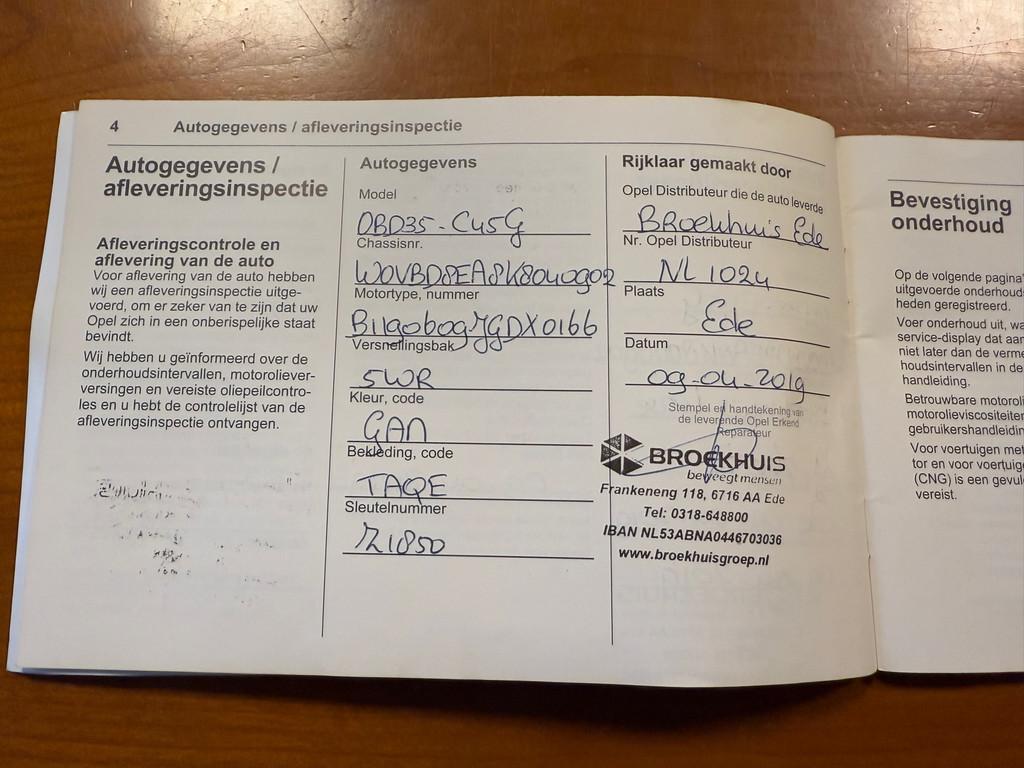 4 Autogegevens / afleveringsinspectie
Autogegevens /
afleveringsinspectie
Afleveringscontrole en
aflevering van de auto
Voor aflevering van de auto hebben
wij een afleveringsinspectie uitge-
voerd, om er zeker van te zijn dat uw
Opel zich in een onberispelijke staat
bevindt.
Wij hebben u geïnformeerd over de
onderhoudsintervallen, motoroliever-
versingen en vereiste oliepeilcontro-
les en u hebt de controlelijst van de
afleveringsinspectie ontvangen.
Autogegevens
Model
0BD35-C45G
Chassisnr.
W0VBD8EA8K8040902
Motortype, nummer
B1190609JGDX0166
Versnellingsbak
5WR
Kleur, code
GAN
Bekleding, code
TAQE
Sleutelnummer
Z1850
Rijklaar gemaakt door
Opel Distributeur die de auto leverde
Broekhuis Ede
Nr. Opel Distributeur
NL 1024
Plaats
Ede
Datum
09-04-2019
Stempel en handtekening van
de leverende Opel Erkend
Reparateur
BROEKHUIS
beweegt mensen
Frankeneng 118, 6716 AA Ede
Tel: 0318-648800
IBAN NL53ABNA0446703036
www.broekhuisgroep.nl
Bevestiging
onderhoud
Op de volgende pagina'
uitgevoerde onderhoud
heden geregistreerd.
Voer onderhoud uit, wa
service-display dat aan
niet later dan de verme
houdsintervallen in de
handleiding.
Betrouwbare motoroli
motorolieviscositeiten
gebruikershandleidin
Voor voertuigen met
tor en voor voertuige
(CNG) is een gevul
vereist.